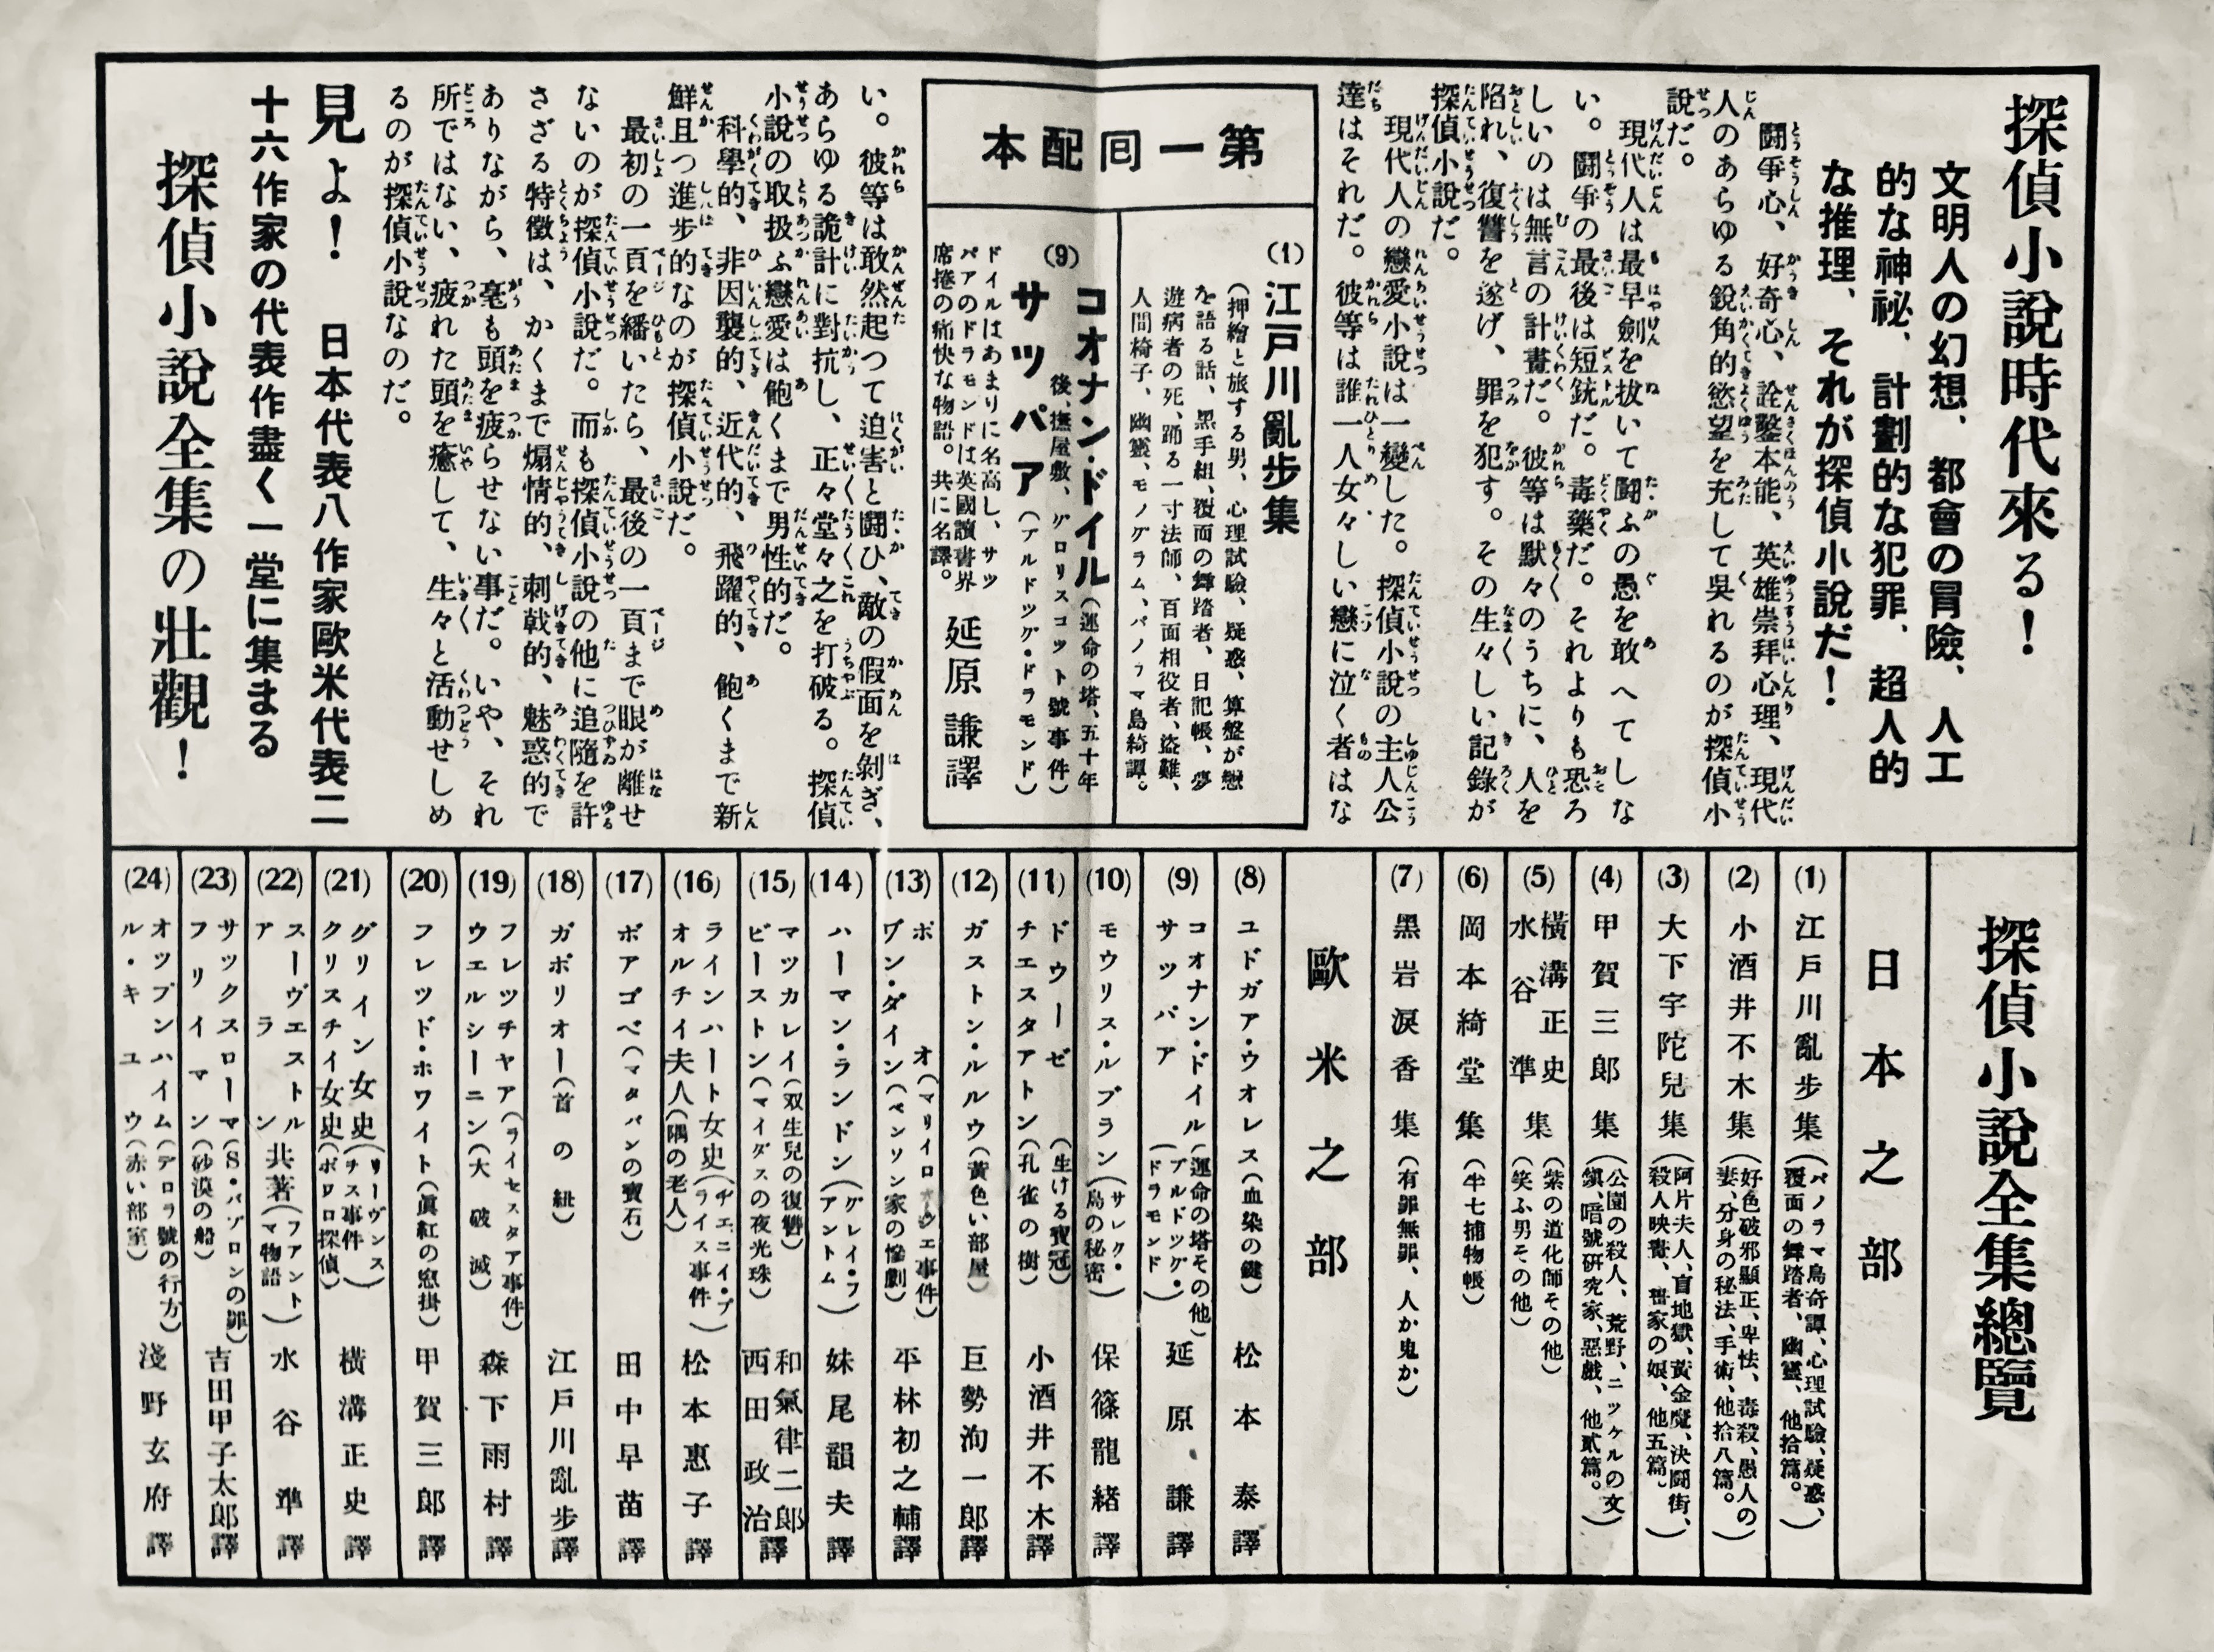 探偵小說時代來る！
文明人の幻想、都會の冒險、人工
的な神祕、計劃的な犯罪、超人的
な推理、それが探偵小說だ！
鬪爭心、好奇心、詮鑿本能、英雄崇拜心理、現代
人のあらゆる銳角的慾望を充して吳れるのが探偵小
說だ。
現代人は最早劍を拔いて鬪ふの愚を敢へてしな
い。鬪爭の最後は短銃だ。毒藥だ。それよりも恐ろ
しいのは無言の計畫だ。彼等は默々のうちに、人を
陷れ、復讐を遂げ、罪を犯す。その生々しい記錄が
探偵小說だ。
現代人の戀愛小說は一變した。探偵小說の主人公
達はそれだ。彼等は誰一人女々しい戀に泣く者はな
第一囘配本
(1)江戶川亂步集
（押繪と旅する男、心理試驗、疑惑、算盤が戀
を語る話、黑手組、覆面の舞踏者、日記帳、夢
遊病者の死、踊る一寸法師、百面相役者、盜難、
人間椅子、幽靈、モノグラム、パノラマ島綺譚。
(9)コオナン・ドイル（運命の塔、五十年
後、撫屋敷、グロリスコット號事件）
サツパア（ブルドツグ・ドラモンド）
ドイルはあまりに名高し、サツ
パアのドラモンドは英國讀書界
席捲の痛快な物語。共に名譯。
延原謙譯
い。彼等は敢然起つて迫害と鬪ひ、敵の假面を剝ぎ、
あらゆる詭計に對抗し、正々堂々之を打破る。探偵
小說の取扱ふ戀愛は飽くまで男性的だ。
科學的、非因襲的、近代的、飛躍的、飽くまで新
鮮且つ進步的なのが探偵小說だ。
最初の一頁を繙いたら、最後の一頁まで眼が離せ
ないのが探偵小說だ。而も探偵小說の他に追隨を許
さざる特徵は、かくまで煽情的、刺戟的、魅惑的で
ありながら、毫も頭を疲らせない事だ。いや、それ
所ではない、疲れた頭を癒して、生々と活動せしめ
るのが探偵小說なのだ。
見よ！　日本代表八作家歐米代表二
十六作家の代表作盡く一堂に集まる
探偵小說全集の壯觀！
探偵小說全集總覽
日本之部
(1)江戶川亂步集（パノラマ島奇譚、心理試驗、疑惑、
覆面の舞踏者、幽靈、他拾篇。）
(2)小酒井不木集（好色破邪顯正、卑怯、毒殺、愚人の
妻、分身の祕法、手術、他拾八篇。）
(3)大下宇陀兒集（阿片夫人、盲地獄、黃金魔、決鬪街、
殺人映畫、畫家の娘、他五篇。）
(4)甲賀三郎集（公園の殺人、荒野、ニツケルの文
鎭、暗號硏究家、惡戲、他貳篇。）
(5)橫溝正史
水谷準集（紫の道化師その他）
（笑ふ男その他）
(6)岡本綺堂集（半七捕物帳）
(7)黑岩淚香集（有罪無罪、人か鬼か）
歐米之部
(8)エドガア・ウオレス（血染の鍵）松本泰譯
(9)コオナン・ドイル（運命の塔その他）
サツパア（ブルドツグ・ドラモンド）延原謙譯
(10)モウリス・ルブラン（サレク・島の祕密）保篠龍緖譯
(11)ドウーゼ（生ける寶冠）
チエスタアトン（孔雀の樹）小酒井不木譯
(12)ガストン・ルルウ（黃色い部屋）巨勢洵一郎譯
(13)ポオ（マリイロオヴエ事件）
ワン・ダイン（ベンソン家の慘劇）平林初之輔譯
(14)ハーマン・ランドン（グレイ・フアントム）妹尾韻夫譯
(15)マツカレイ（双生兒の復讐）和氣律二郎
ビーストン（マイダスの夜光珠）西田政治譯
(16)ラインハート女史（ヂエニイ・ブライス事件）
オルチイ夫人（隅の老人）松本惠子譯
(17)ボアゴベ（マタパンの寶石）田中早苗譯
(18)ガボリオー（首の紐）江戶川亂步譯
(19)フレツチヤア（ライセスタア事件）
ウエルシーニン（大破滅）森下雨村譯
(20)フレツド・ホワイト（眞紅の窓掛）甲賀三郎譯
(21)グリイン女史（リーヴンスチス事件）
クリスチイ女史（ポワロ探偵）橫溝正史譯
(22)スーヴエストル
アラン共著（フアントマ物語）水谷準譯
(23)サックスローマ（S・バゾロンの罪）
フリイマン（砂漠の船）吉田甲子太郎譯
(24)オツプンハイム（デロラ號の行方）
ル・キユウ（赤い部室）淺野玄府譯